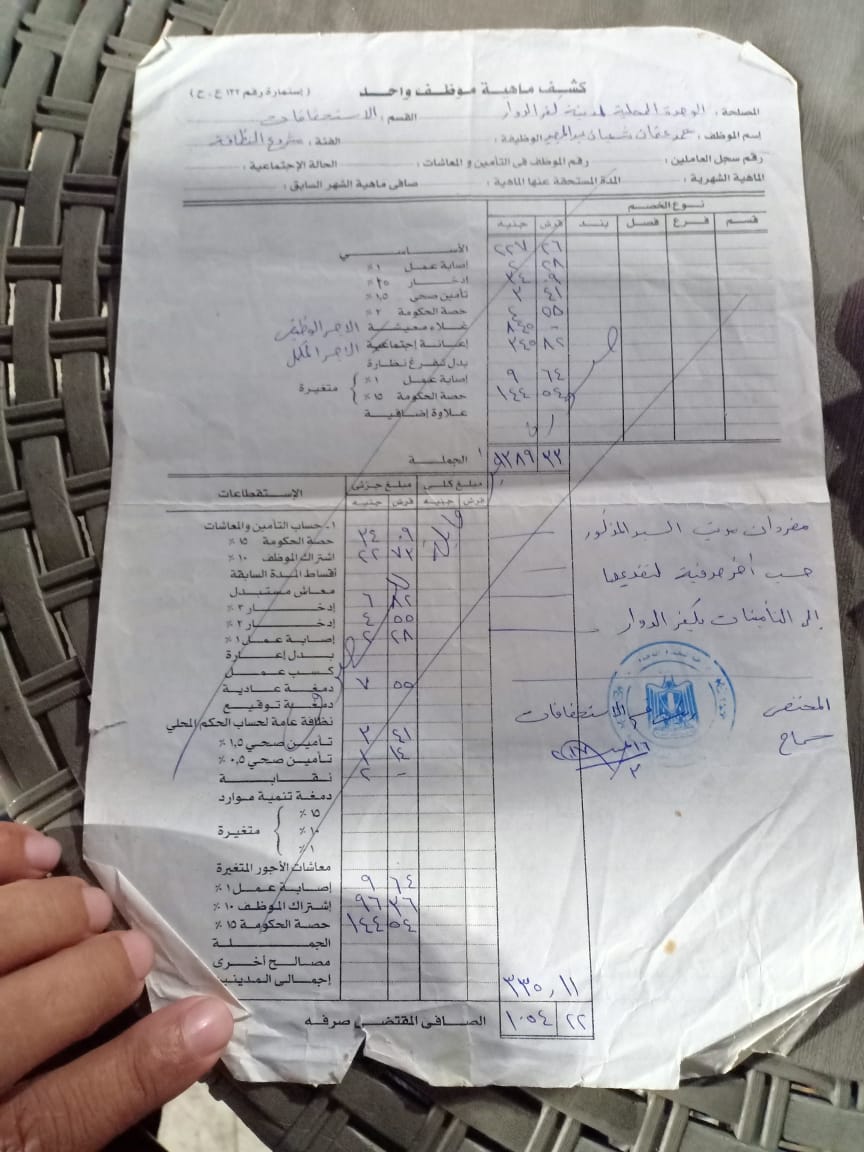 كشف ماهية موظف واحد
( إستمارة رقم ١٣٢ ع . ح )
المصلحة : الوحدة المحلية لمدينة كفر الدوار القسم : الاستحقاقات
إسم الموظف : شعبان الوظيفة : الفئة : مشروع النظافة
رقم سجل العاملين : رقم الموظف فى التأمين و المعاشات : الحالة الإجتماعية :
الماهية الشهرية : المدة المستحقة عنها الماهية : صافى ماهية الشهر السابق :
نوع الخصم
قسم فرع فصل بند قرش جنيه
الأساسى ٢٦ ٢٢٧
إصابة عمل ١ ٪ ٢٨ ٢
إدخار ٠٩ ٣٤
تأمين صحى ١,٥ ٪ ٤١ ٣
حصة الحكومة ٢ ٪ ٥٥ ٤
غلاء معيشة الاجر الوظيفى - ٨٤٥
إعانة إجتماعية الاجر المكمل ٨٢ ٢٤٥
بدل تفرغ نظارة
إصابة عمل ١ ٪ ٦٤ ٩
حصة الحكومة ١٥ ٪ ٥٤ ١٤٤
متغيرة
علاوة إضافية
الجملة ٣٣
الإستقطاعات مبلغ جزئى مبلغ كلى
قرش جنيه قرش جنيه
١ـ حساب التأمين والمعاشات
حصة الحكومة ١٥ ٪ ٠٩ ٣٤
اشتراك الموظف ١٠ ٪ ٧٣ ٢٢
أقساط المدة السابقة
معاش مستبدل
إدخار ٣ ٪ ٨٢ ٦
إدخار ٢ ٪ ٥٥ ٤
إصابة عمل ١ ٪ ٢٨ ٢
بدل إعارة
كسب عمل
دمغة عادية ٥٥ ٧
دمغة توقيع
نظافة عامة لحساب الحكم المحلي
تأمين صحي ١,٥ ٪ ٤١ ٣
تأمين صحي ٠,٥ ٪ ١٤ ١
نقابة - ٢
دمغة تنمية موارد
١٥ ٪
١٠ ٪
١ ٪
متغيرة
معاشات الأجور المتغيرة
إصابة عمل ١ ٪ ٦٤ ٩
إشتراك الموظف ١٠ ٪ ٣٦ ٩٦
حصة الحكومة ١٥ ٪ ٥٤ ١٤٤
الجملة
مصالح أخرى
إجمالى المدينيـ ٣٣٥,١١
الصافى المقتضى صرفه ٢٢ ١٠٥٤
مفردات السيد المذكور
حسب أخر صرفية لتقديمها
إلى التأمينات بكفر الدوار
المختص
سماح
الاستحقاقات